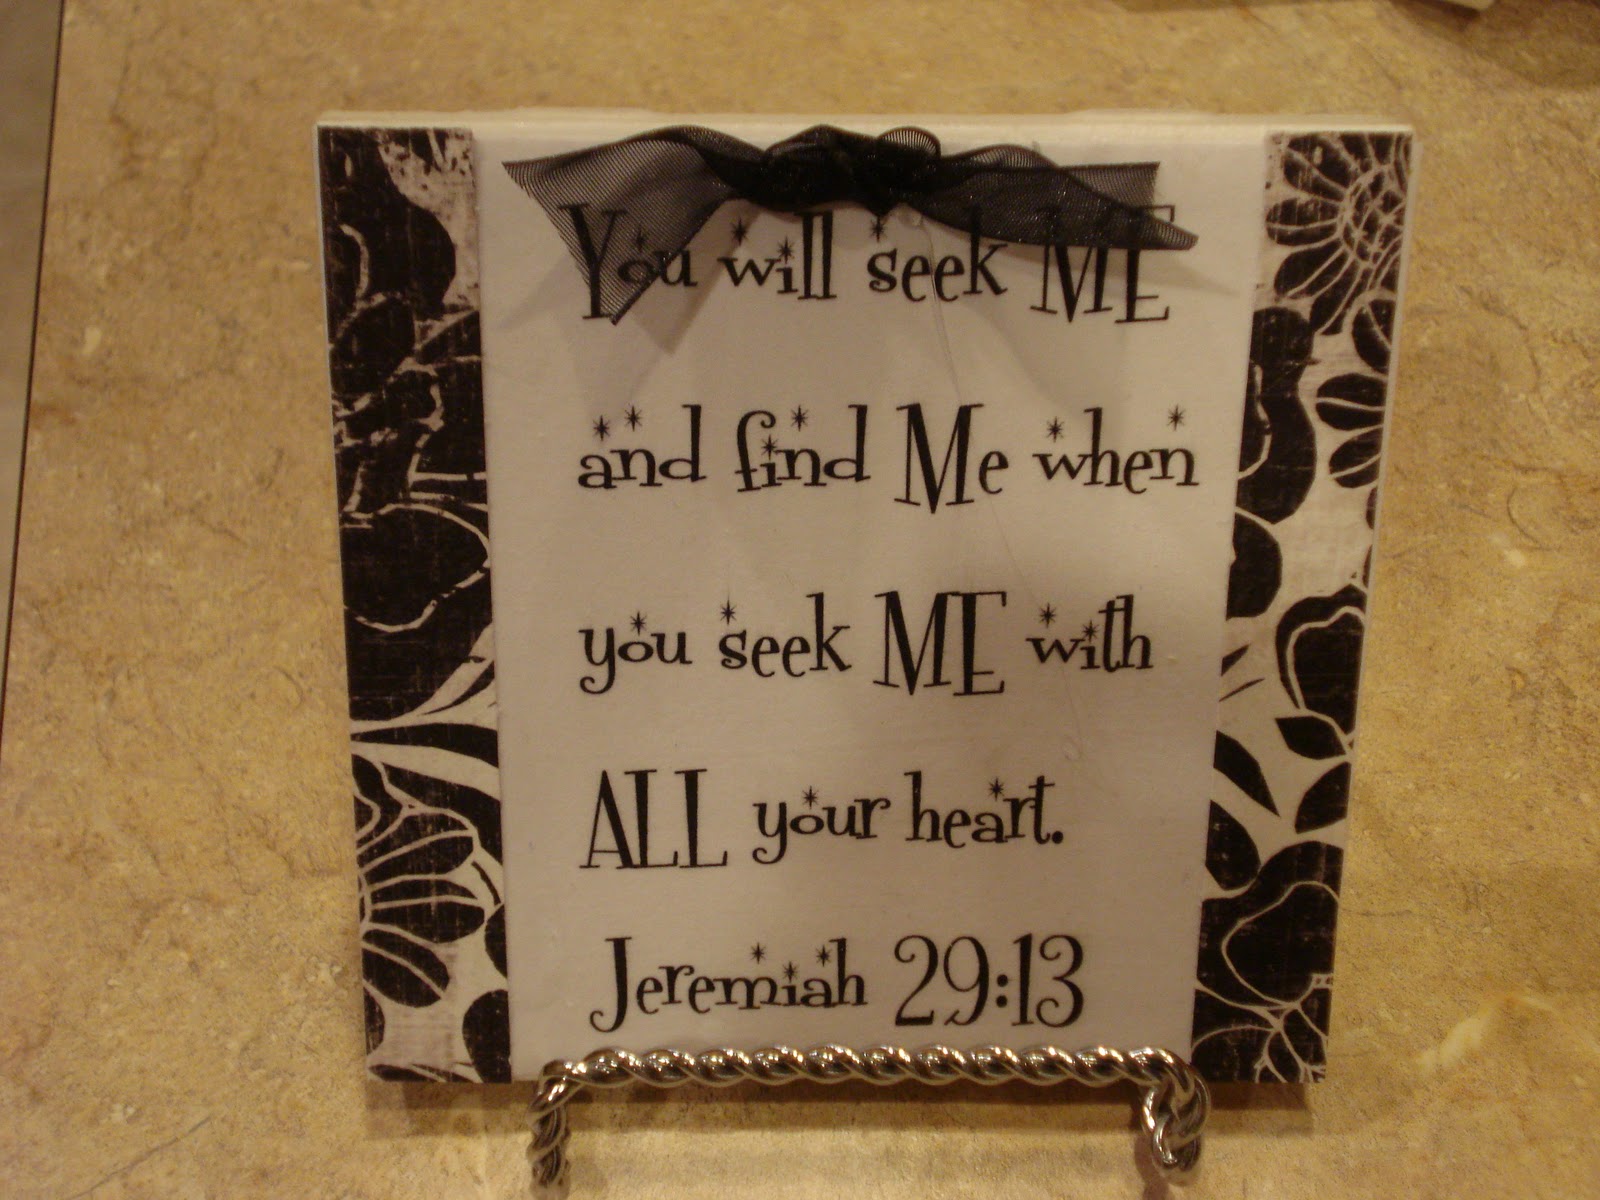 You will seek ME
and find Me when
you seek ME with
ALL your heart.
Jeremiah 29:13